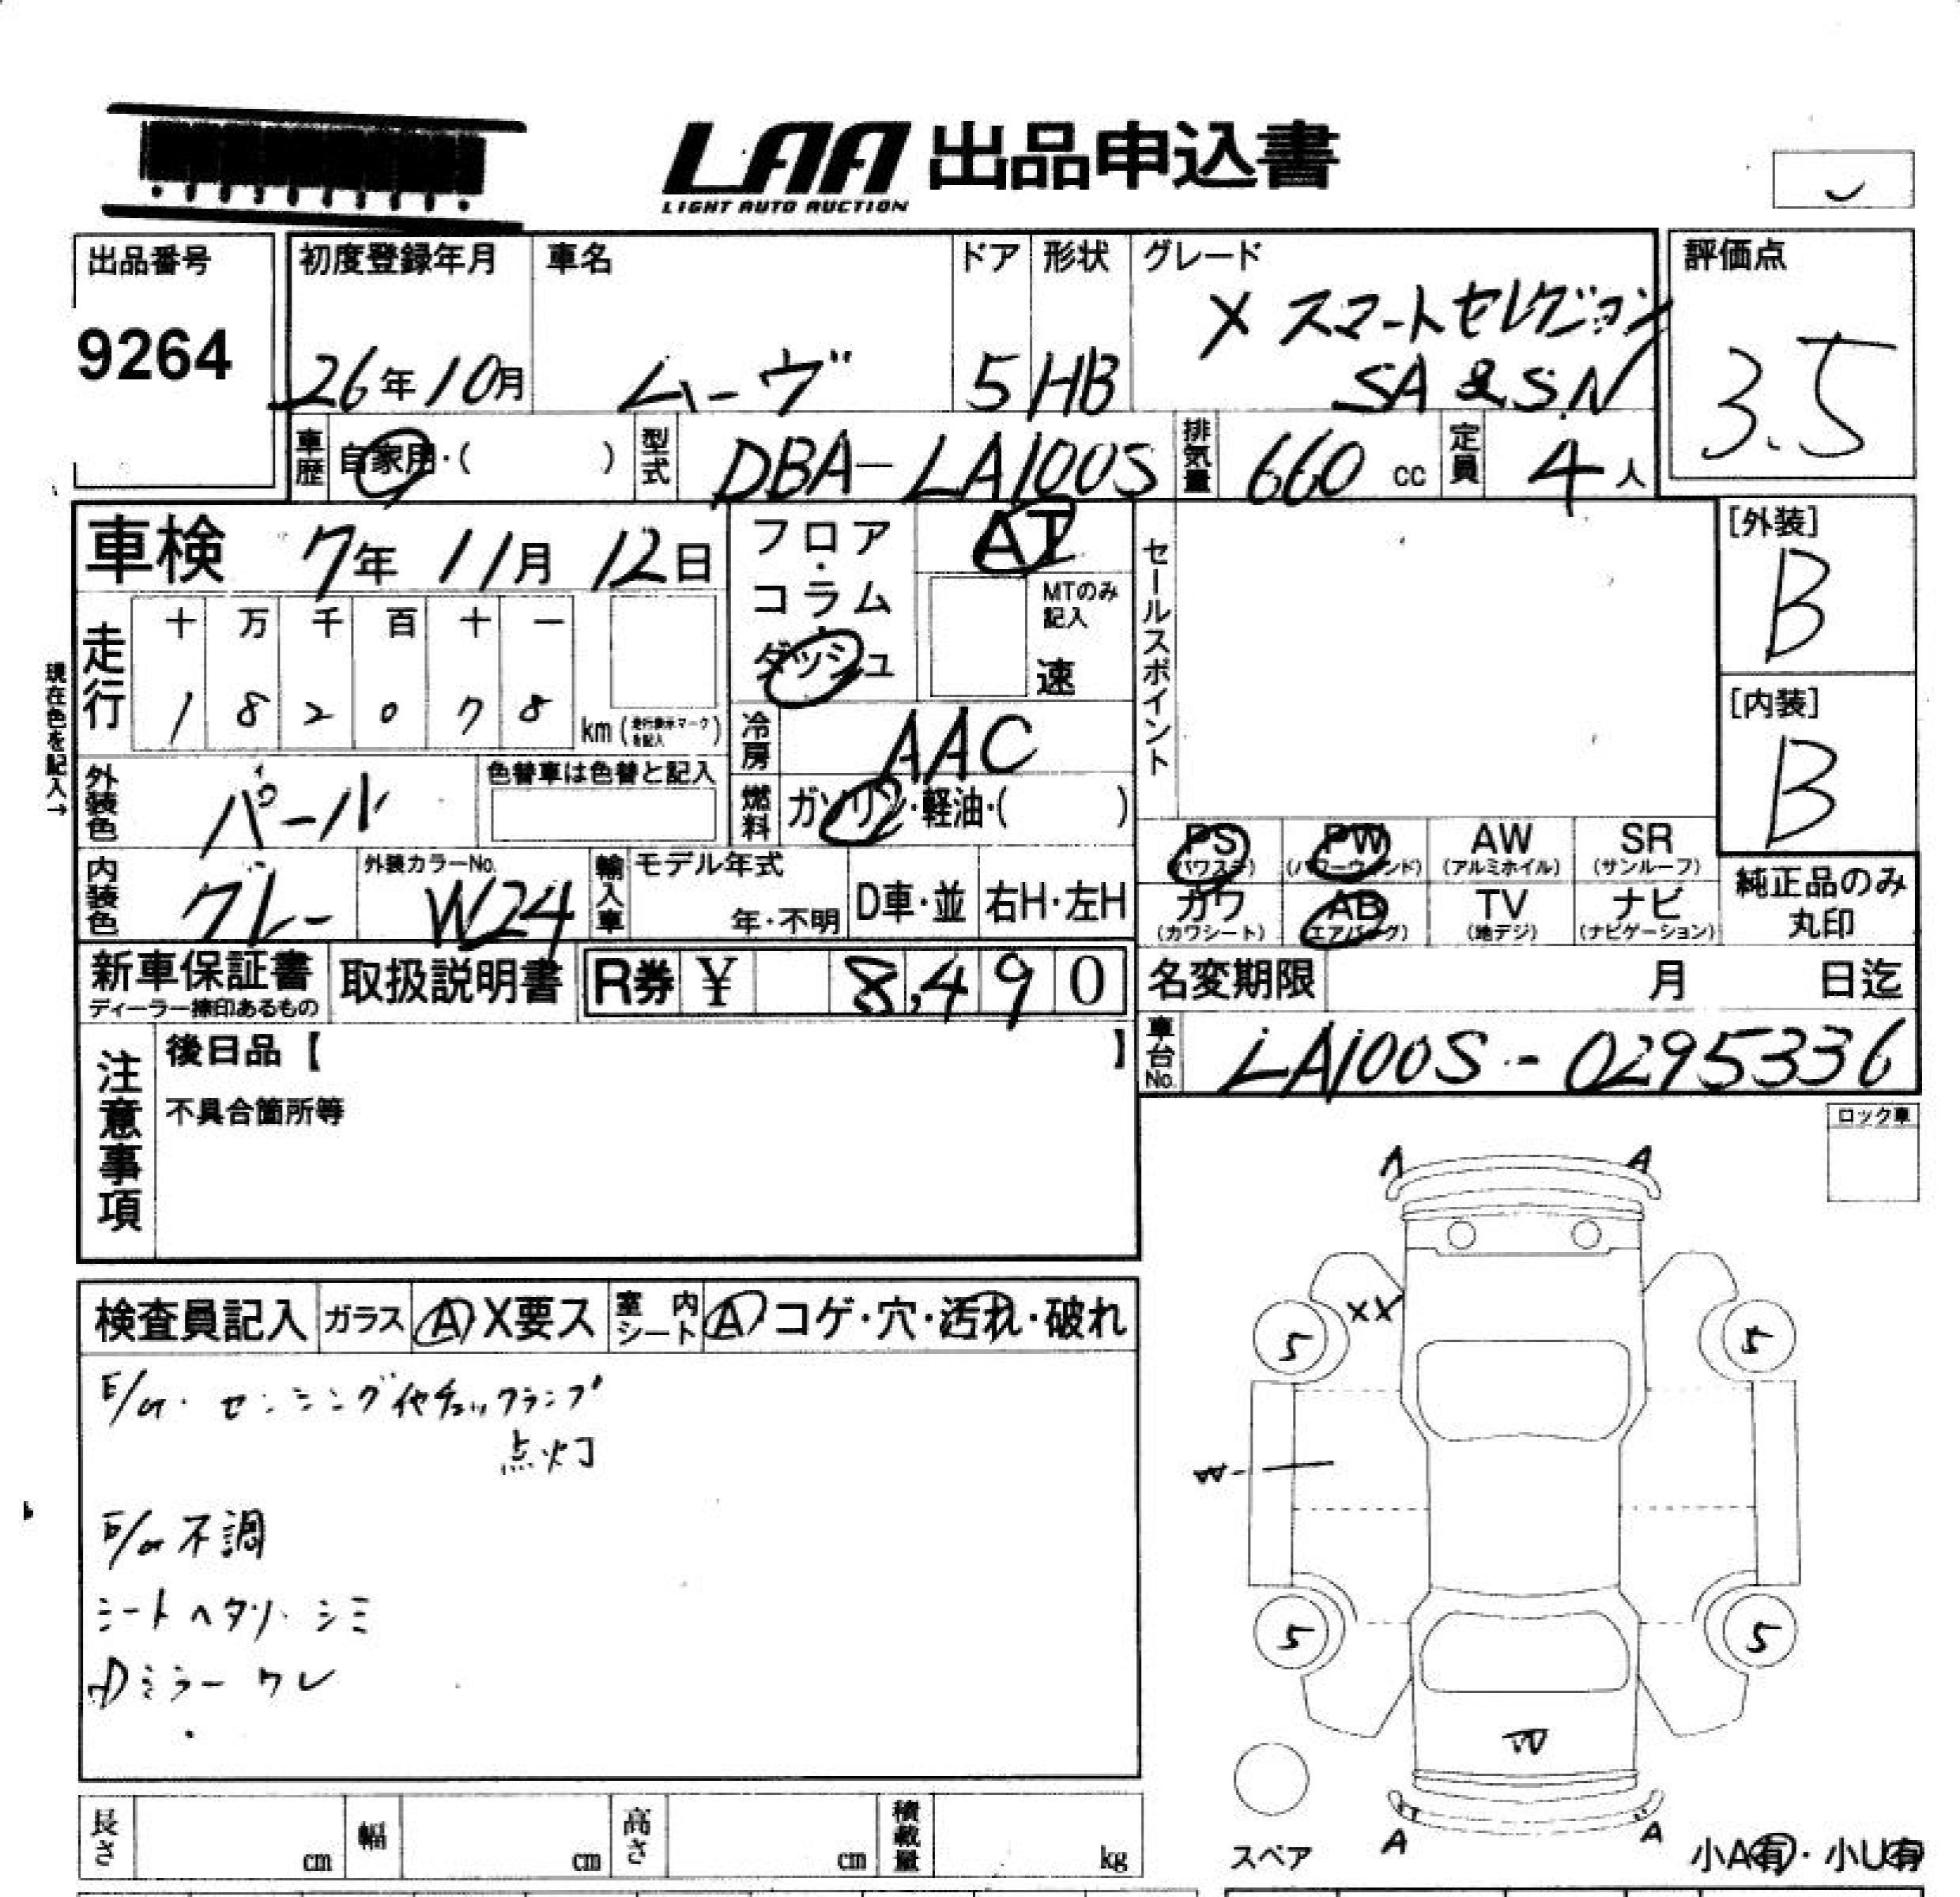 LAA 出品申込書
LIGHT AUTO AUCTION
出品番号
9264
初度登録年月
26年10月
車名
ムーヴ
ドア
5
形状
HB
グレード
X スマートセレクション
SA & S.N
評価点
3.5
車歴
自家用・( )
型式
DBA-LA100S
排気量
660 cc
定員
4人
車検 7年11月12日
走行
十 万 千 百 十 一
1 8 2 0 7 8
km (走行表示マークを記入)
現在色を記入→
フロア・コラム・ダッシュ
AT
MTのみ記入
速
冷房
AAC
燃料
ガソリン・軽油・( )
セールスポイント
[外装]
B
[内装]
B
外装色
パール
色替車は色替と記入
内装色
グレー
外装カラーNo.
W24
輸入車
モデル年式
年・不明
D車・並
右H・左H
PS
(パワステ)
PW
(パワーウィンド)
AW
(アルミホイル)
SR
(サンルーフ)
カワ
(カワシート)
AB
(エアバッグ)
TV
(地デジ)
ナビ
(ナビゲーション)
純正品のみ
丸印
新車保証書
ディーラー捺印あるもの
取扱説明書
R券 ¥ 8,490
名変期限 月 日迄
車台No.
LA100S-0295336
注意事項
後日品【 】
不具合箇所等
ロック車
検査員記入
ガラス A X要ス
室内シート A コゲ・穴・汚れ・破れ
E/G・センシング他チェックランプ
点灯
E/G不調
シートヘタリ・シミ
Dミラーワレ
A A
XX
5 5
5 5
W
A A
スペア
小A有・小U有
長さ cm
幅 cm
高さ cm
積載量 kg